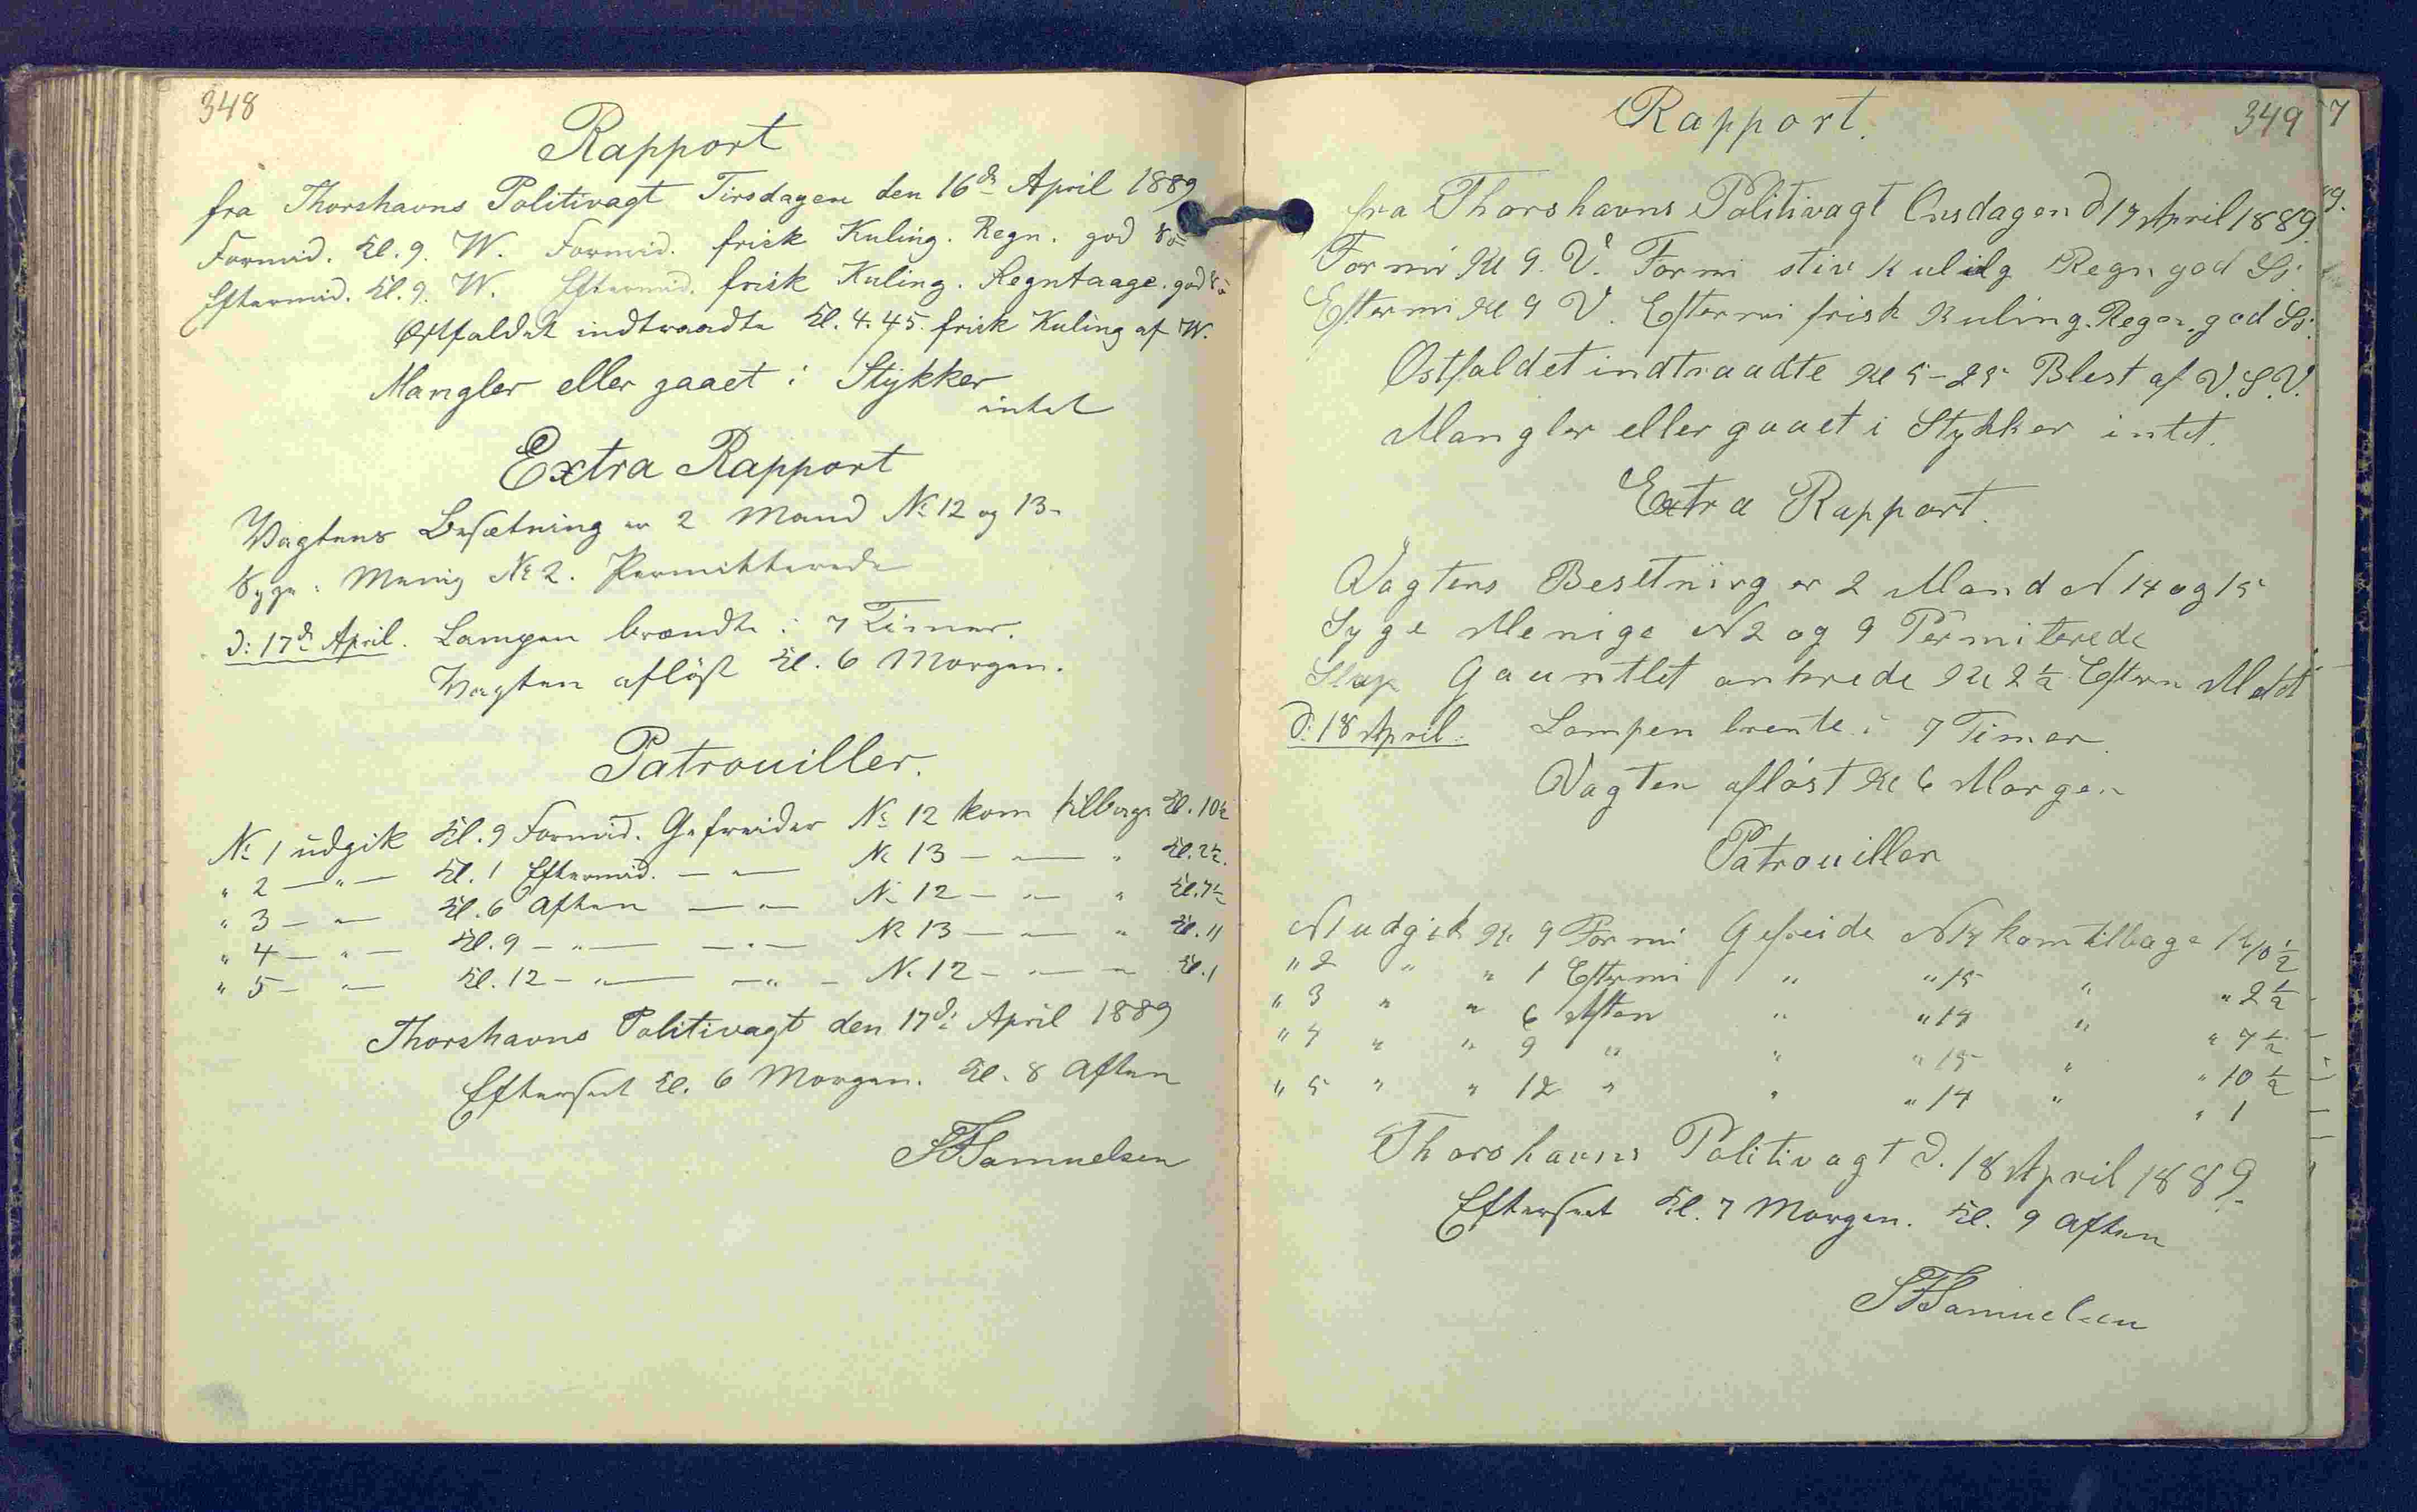 348
Rapport
fra Thorshavns Politivagt Tirsdagen den 16de April 1889
Formid. Kl. 9. W. Formid. frisk Kuling. Regn. god Sö
Eftermid. Kl. 9. W. Eftermid. frisk Kuling. Regntaage. god Sö
Østfaldet indtraadte Kl. 4.45. frisk Kuling af W.
Mangler eller gaaet i Stykker
intet
Extra Rapport
Vagtens Besætning er 2 Mand No 12 og 13-
Syge: Menig No 2. Permitterede
d: 17de April. Lampen brændte i 7 Timer.
Vagten aflöst Kl. 6 Morgen.
Patrouiller.
No 1 udgik Kl. 9 Formid. Gefreider No 12 kom tilbage Kl. 10½
" 2 — " — Kl. 1 Eftermid. — " — No 13 — " — " Kl. 2½.
" 3 — " — Kl. 6 Aften — " — No 12 — " — " Kl. 7½
" 4 — " — Kl. 9 — " — — " — No 13 — " — " Kl. 11
" 5 — " — Kl. 12 — " — — " — No 12 — " — " Kl. 1
Thorshavns Politivagt den 17de April 1889
Efterseet Kl. 6 Morgen. Kl. 8 Aften
Samuelsen
349
Rapport.
fra Thorshavns Politivagt Onsdagen d 17 April 1889.
Formi Kl 9. V. Formi stiv Kulilg Regn god Sö.
Eftermi Kl 9 V. Eftermi frisk Kuling. Regn. god Sö.
Østfaldet indtraadte Kl 5-25 Blest af V.S.V.
Mangler eller gaaet i Stykker intet.
Extra Rapport.
Vagtens Besetning er 2 Mand N 14 og 15
Syge Menige N 2 og 9 Permiterede
Slup Gauntlet ankrede Kl 2½ Efterm
d: 18 April. Lampen brente i 7 Timer.
Vagten afløst Kl 6 Morgen
Patrouiller
N1 udgik Kl 9 Formi Gefreide N14 kom tilbage Kl 10½
" 2 " " 1 Eftermi " " 15 " " 2½
" 3 " " 6 Aften " " 14 " " 7½
" 4 " " 9 " " " 15 " " 10½
" 5 " " 12 " " " 14 " " 1
Thorshavns Politivagt d. 18 April 1889.
Efterseet Kl. 7 Morgen. Kl. 9 Aften
Samuelsen